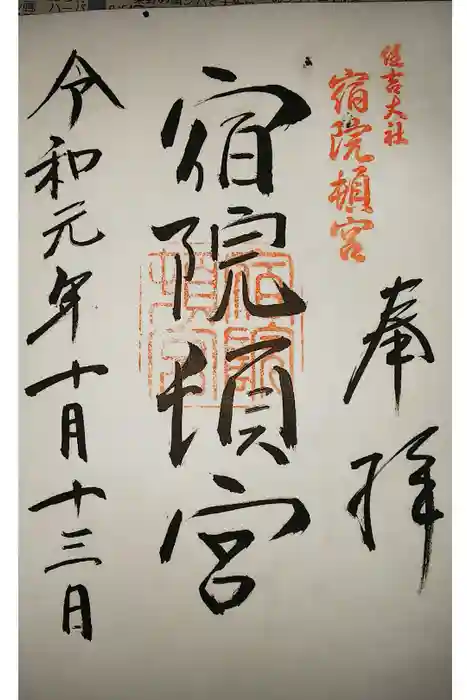 住吉大社
宿院頓宮
奉拝
宿院頓宮
宿院
頓宮
令和元年十月十三日